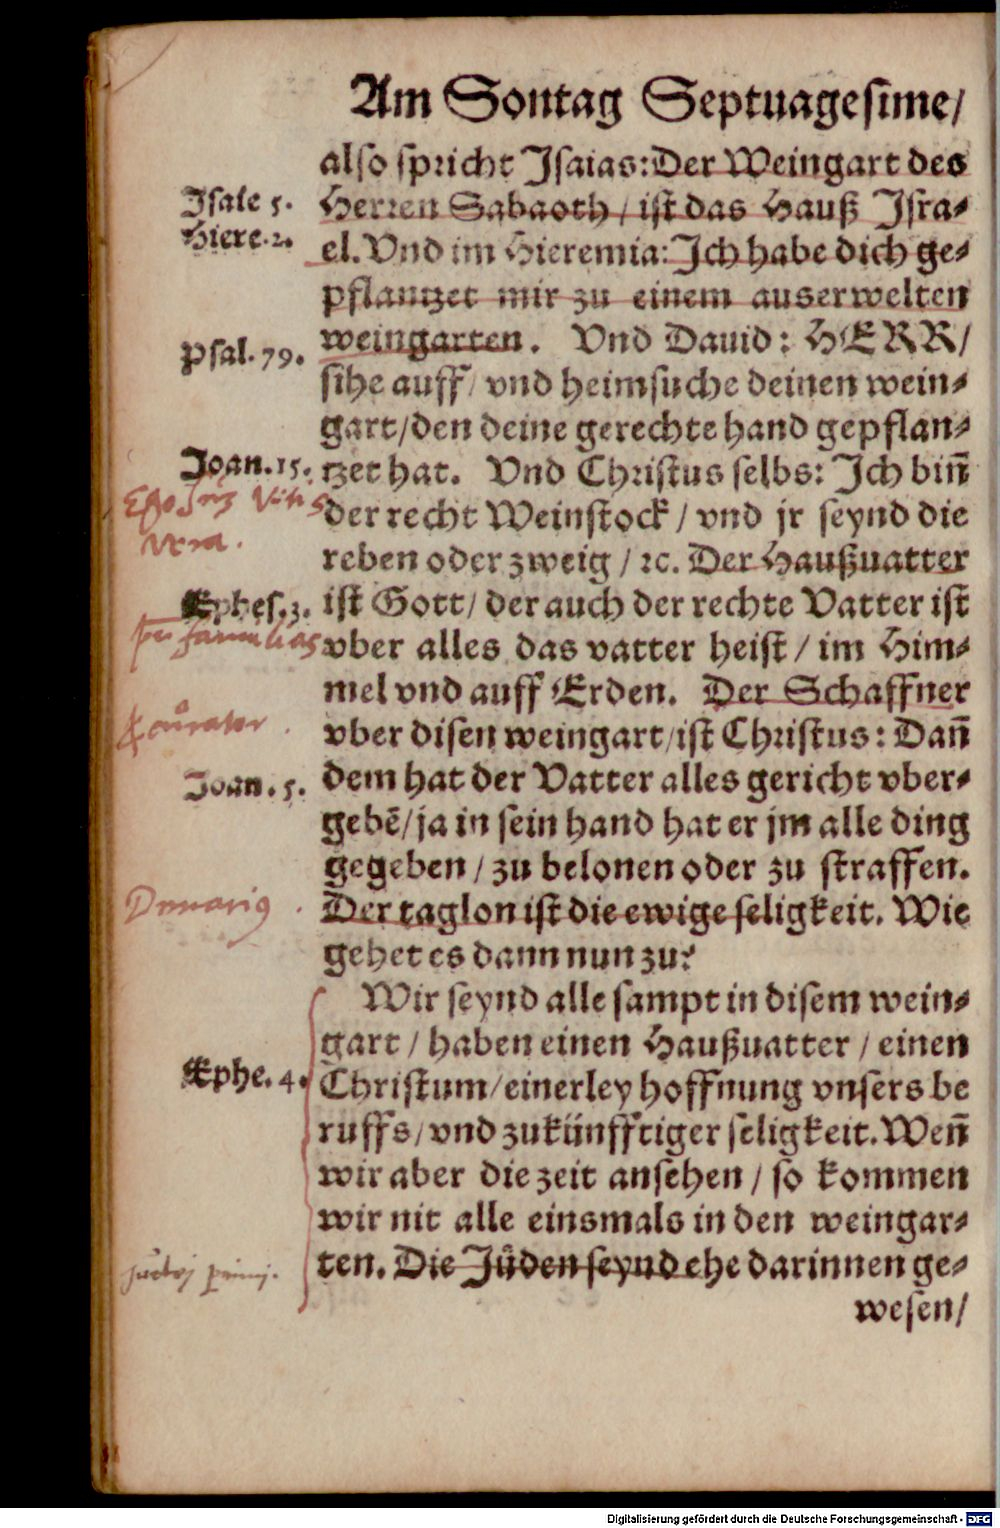 Am Sontag Septuagesime/
also spricht Isaias: Der Weingart des
Isaie 5.
Herren Sabaoth / ist das Hauß Isra-
Hiere. 2.
el. Vnd im Hieremia: Ich habe dich ge-
pflantzet mir zu einem auserwelten
weingarten. Vnd Dauid: HERR/
Psal. 79.
sihe auff/ vnd heimsuche deinen wein-
gart/den deine gerechte hand gepflan-
Joan. 15.
tzet hat. Vnd Christus selbs: Ich biñ
Ego sum vitis
der recht Weinstock / vnd jr seynd die
vera.
reben oder zweig / ꝛc. Der Haußuatter
Ephes. 3.
ist Gott/ der auch der rechte Vatter ist
familias
vber alles das vatter heist / im Him-
mel vnd auff Erden. Der Schaffner
vber disen weingart/ist Christus: Dañ
Joan. 5.
dem hat der Vatter alles gericht vber-
gebẽ/ja in sein hand hat er jm alle ding
gegeben / zu belonen oder zu straffen.
Denarius
Der taglon ist die ewige seligkeit. Wie
gehet es dann nun zu?
Wir seynd alle sampt in disem wein-
gart / haben einen Haußuatter / einen
Ephe. 4.
Christum/einerley hoffnung vnsers be
ruffs/ vnd zukünfftiger seligkeit. Weñ
wir aber die zeit ansehen / so kommen
wir nit alle einsmals in den weingar-
ten. Die Jüden seynd ehe darinnen ge-
wesen/
Digitalisierung gefördert durch die Deutsche Forschungsgemeinschaft - DFG